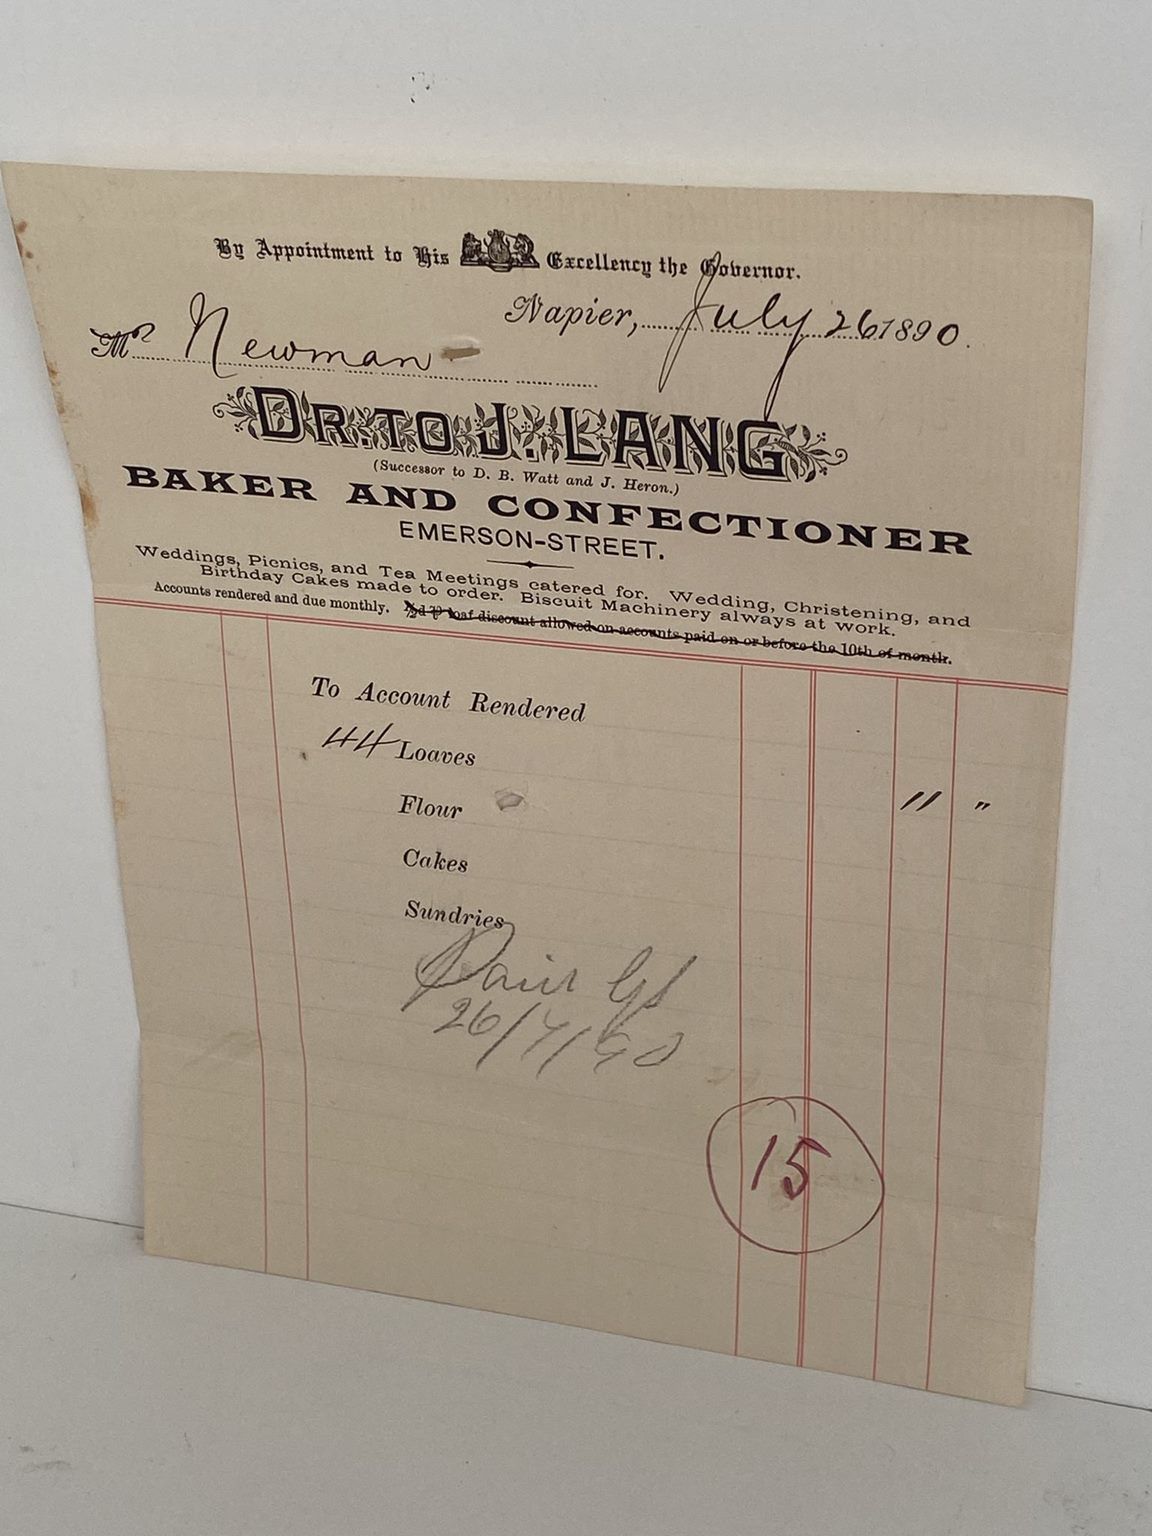 By Appointment to His Excellency the Governor.
Napier, July 26 1890.
Mr Newman
DR. TO J. LANG
(Successor to D. B. Watt and J. Heron.)
BAKER AND CONFECTIONER
EMERSON-STREET.
Weddings, Picnics, and Tea Meetings catered for. Wedding, Christening, and
Birthday Cakes made to order. Biscuit Machinery always at work.
Accounts rendered and due monthly. ½d ⅌ loaf discount allowed on accounts paid on or before the 10th of month.
To Account Rendered
44 Loaves
Flour 11 "
Cakes
Sundries
26/7/90
15